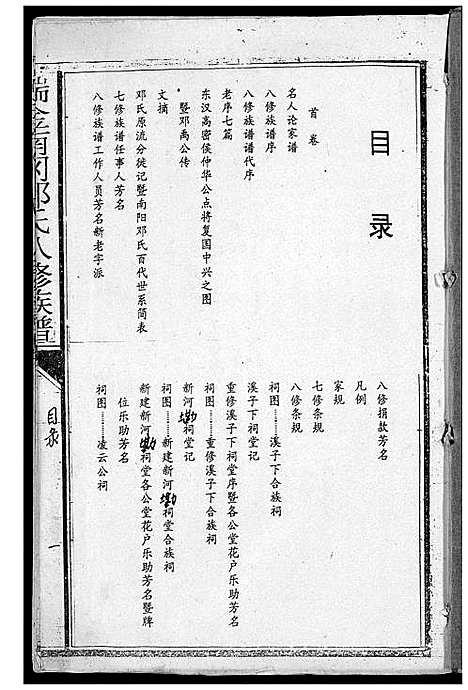 目录
首卷
名人论家谱
八修族谱序
八修族谱谱代序
老序七篇
东汉高密侯仲华公点将复国中兴之图
暨邓禹公传
文摘
邓氏原流分徙记暨南阳邓氏百代世系简表
七修族谱任事人芳名
八修族谱工作人员芳名新老字派
八修捐款芳名
凡例
家规
七修条规
八修条规
祠图……溪子下合族祠
溪子下祠堂记
重修溪子下祠堂序暨各公堂花户乐助芳名
祠图……重修溪子下合族祠
新河坳祠堂记
祠图……新建新河坳祠堂合族祠
新建新河坳祠堂各公堂花户乐助芳名暨牌
位乐助芳名
祠图……凌云公祠
瑞金南冈邓氏八修族谱
目录
一